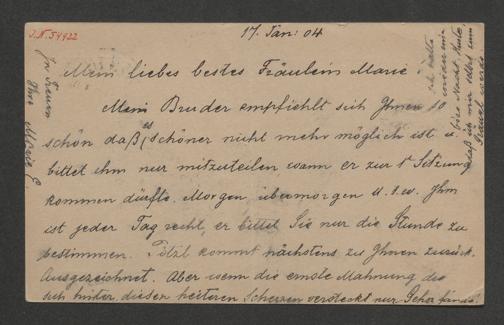 J.N. 54922
17. Jan: 04
Mein liebes bestes Fräulein Marie!
Mein Bruder empfiehlt sich Ihnen so
schön daß es schöner nicht mehr möglich ist u.
bittet ihm nur mitzuteilen wann er zur 1t Sitzung
kommen dürfte. Morgen, übermorgen u.s.w. Ihm
ist jeder Tag recht, er bittet Sie nur die Stunde zu
bestimmen. kommt nächstens zu Ihnen zurück.
Ausgezeichnet. Aber wenn die ernste Mahnung die
sich hinter diesen heiteren Scherzen versteckt nur Gehör fände!
ich hatte
wieder eine
böse Nacht, Huste
daß ich mir selbst zum
werde
In Treuen
Ihre Marie E.